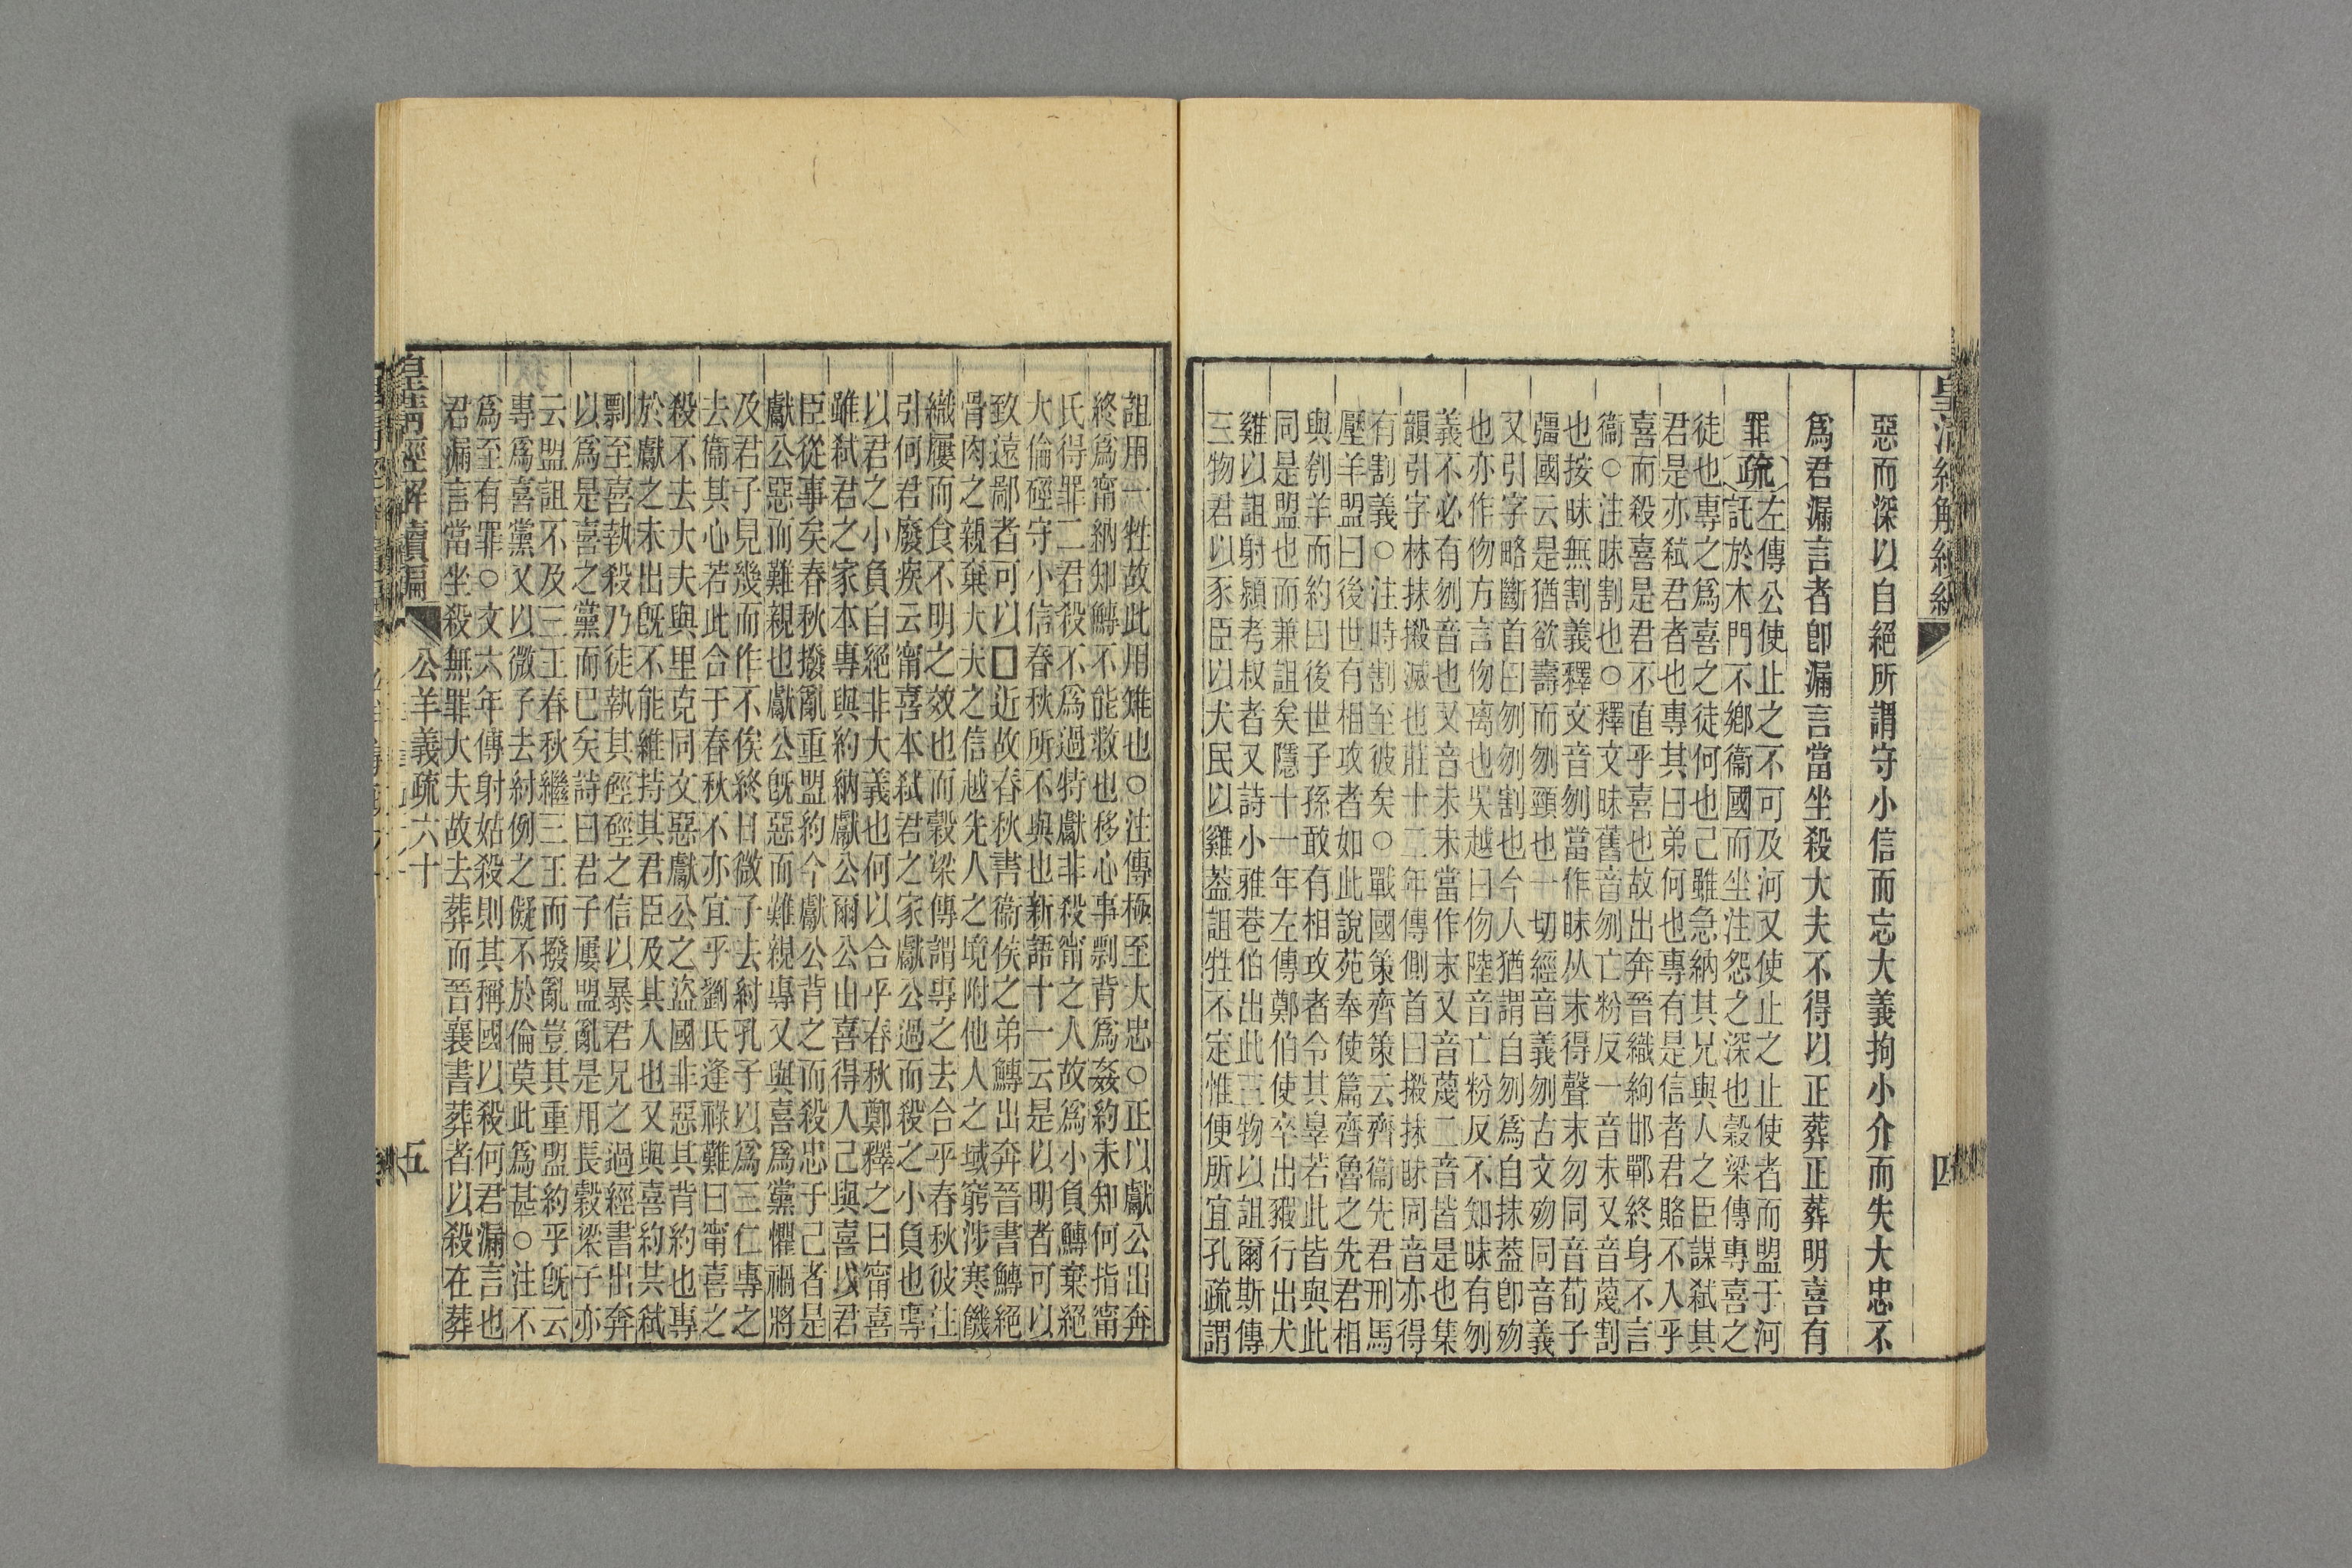 惡而深以自絕所謂守小信而忘大義拘小介而失大忠不
爲君漏言者卽漏言當坐殺大夫不得以正葬正葬明喜有
罪疏左傳公使止之不可及河又使止之止使者而盟于河
託於木門不鄉衞國而坐注怨之深也穀梁傳專喜之
徒也專之爲喜之徒何也己雖急納其兄與人之臣謀弑其
君是亦弑君者也專其曰弟何也專有是信者君賂不入乎
喜而殺喜是君不直乎喜也故出奔晉織絢邯鄲終身不言
衞○注昧割也○釋文昧舊音刎亡粉反一音末又音蔑割
也按昧無割義釋文音刎當作昧从末得聲末勿同音荀子
彊國云是猶欲壽而刎頸也一切經音義刎古文歾同音義
又引字略斷首曰刎刎割也今人猶謂自刎爲自抹葢卽歾
也亦作伆方言伆离也吳越曰伆陸音亡粉反不知昧有刎
義不必有刎音也又音未未當作末又音蔑二音皆是也集
韻引字林抹搬滅也莊十二年傳側首曰搬抹昧同音亦得
有割義○注時割至彼矣○戰國策齊策云齊衞先君刑馬
壓羊盟曰後世有相攻者如此說苑奉使篇齊魯之先君相
與刳羊而約曰後世子孫敢有相攻者令其辠若此皆與此
同是盟也而兼詛矣隱十一年左傳鄭伯使卒出豭行出犬
雞以詛射潁考叔者又詩小雅巷伯出此三物以詛爾斯傳
三物君以豕臣以犬民以雞葢詛牲不定惟便所宜孔疏謂
詛用一牲故此用雉也○注傳極至大忠○正以獻公出奔
終爲甯納知鱄不能救也移心事剽背爲姦約未知何指甯
氏得罪二君殺不爲過特獻非殺甯之人故爲小負鱄棄絕
大倫硜守小信春秋所不與也新語十一云是以明者可以
致遠鄙者可以□近故春秋書衞侯之弟鱄出奔晉書鱄絕
骨肉之親棄大夫之信越先人之境附他人之域窮涉寒饑
織屨而食不明之效也而穀梁傳謂專之去合乎春秋彼注
引何君廢疾云甯喜本弑君之家獻公過而殺之小負也專
以君之小負自絕非大義也何以合乎春秋鄭釋之曰甯喜
雖弑君之家本專與約納獻公爾公由喜得入己與喜以君
臣從事矣春秋撥亂重盟約今獻公背之而殺忠于己者是
獻公惡而難親也獻公旣惡而難親專又與喜爲黨懼禍將
及君子見幾而作不俟終日微子去紂孔子以爲三仁專之
去衞其心若此合于春秋不亦宜乎劉氏逢祿難曰甯喜之
殺不去大夫與里克同文惡獻公之盜國非惡其背約也專
於獻之未出旣不能維持其君臣及其人也又與喜約共弑
剽至喜執殺乃徒執其硜硜之信以暴君兄之過經書出奔
以爲是喜之黨而已矣詩曰君子屢盟亂是用長穀梁子亦
云盟詛不及三王春秋繼三王而撥亂豈其重盟約乎旣云
專爲喜黨又以微子去紂例之儗不於倫莫此爲甚○注不
爲至有罪○文六年傳射姑殺則其稱國以殺何君漏言也
君漏言當坐殺無罪大夫故去葬而晉襄書葬者以殺在葬
公羊義疏六十
五
四